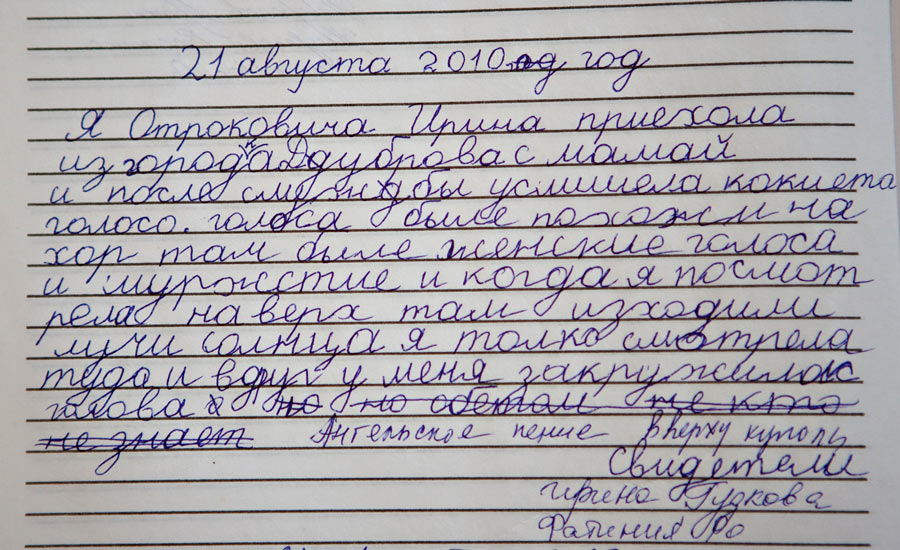 21 августа 2010 од год
Я Отроковича Ирина приехола
из города Ддуброва с мамай
и после службы услишела кокиета
голосо. голоса быле похожи на
хор там быле женские голоса
и мужстие и когда я посмот
рела на верх там изходили
лучи солнца я толко смотрела
туда и вдруг у меня закружилас
голова я но но обетом не кто
не знает Ангельское пение Вверху куполы
Свидетели
ирина Гудкова
Фатиния Ро